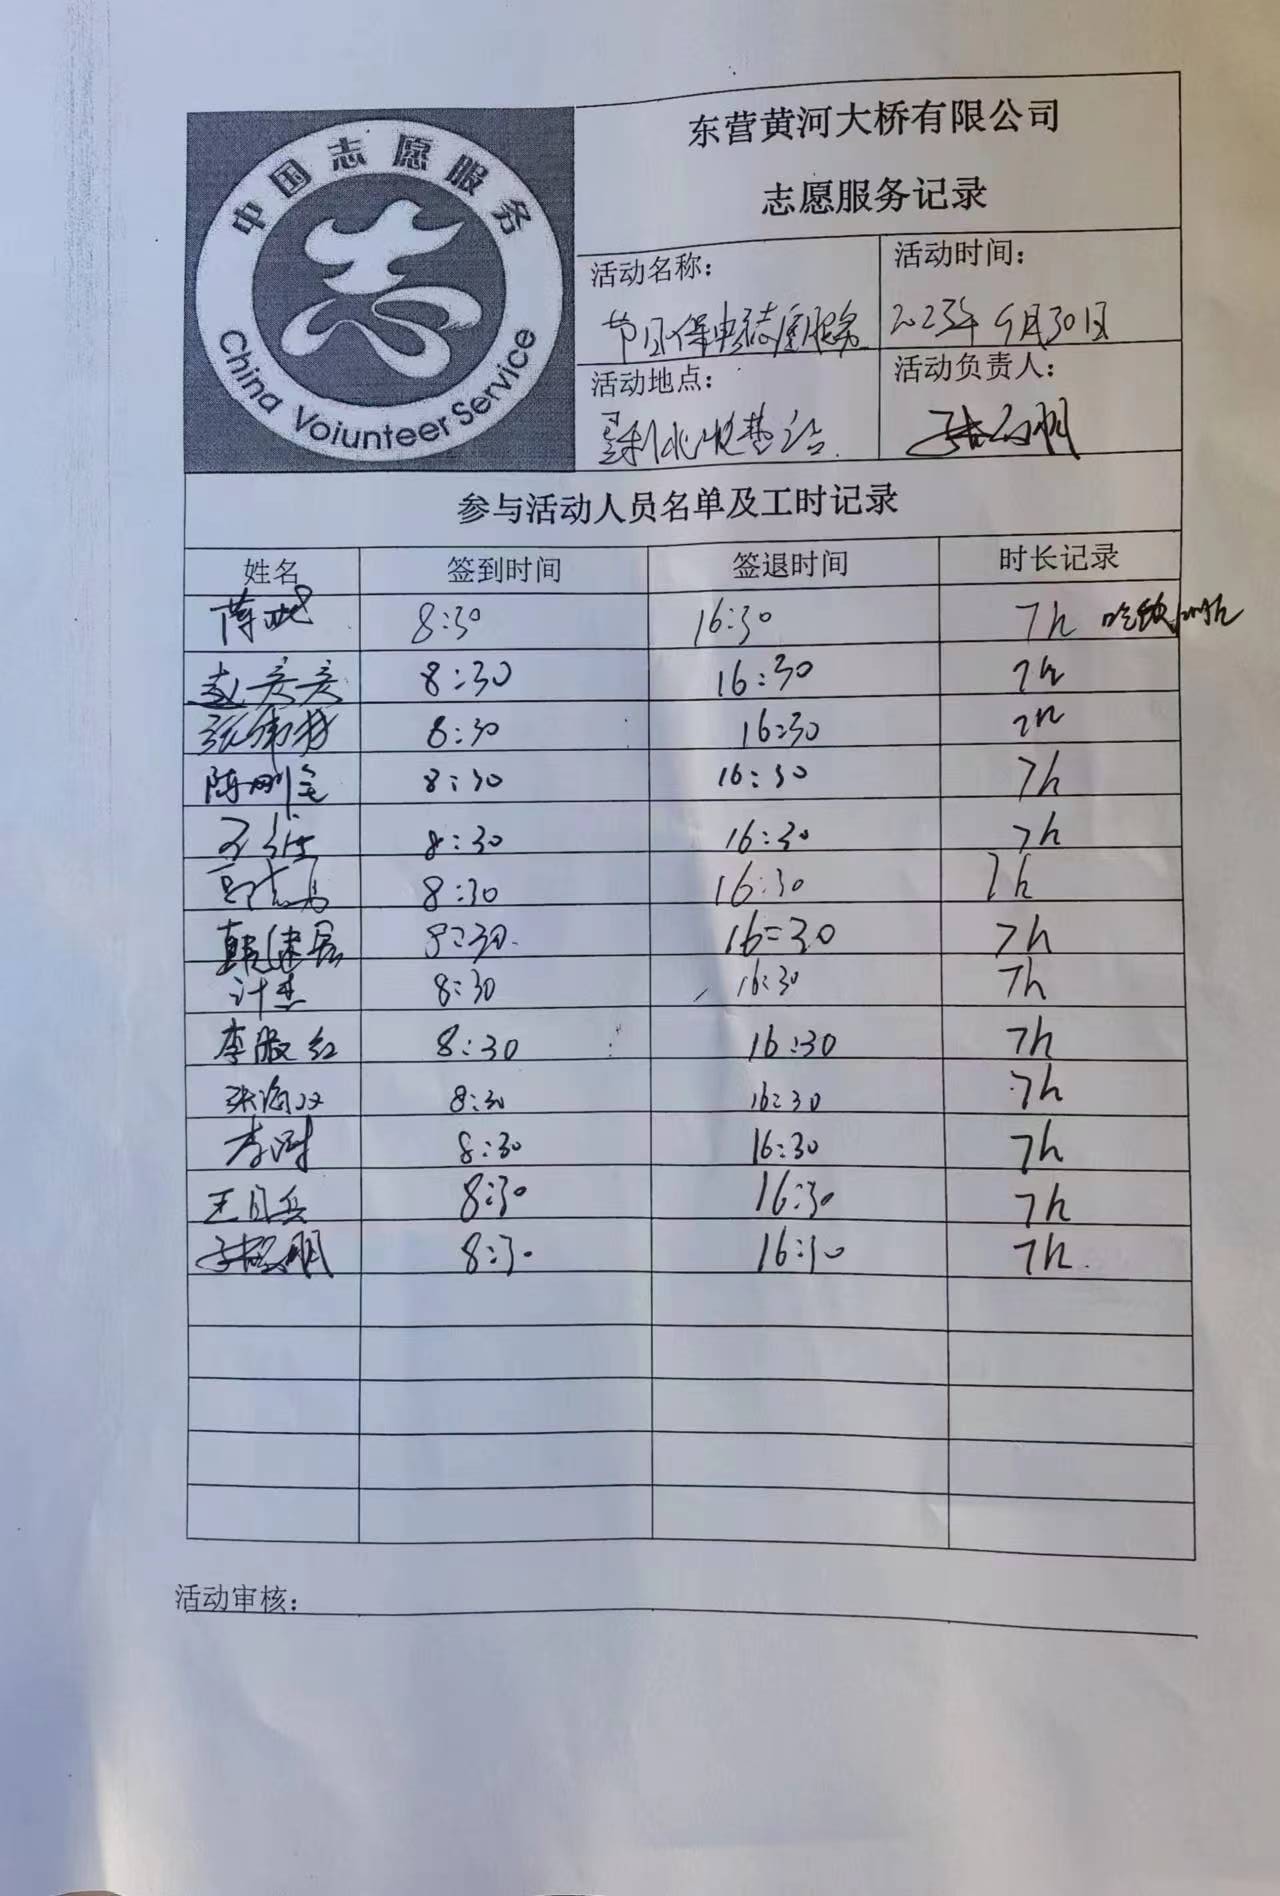 中国志愿服务
China Voiunteer Service
东营黄河大桥有限公司
志愿服务记录
活动名称：
节日保电志愿服务
活动时间：
2023年9月30日
活动地点：
垦利北收费站
活动负责人：
参与活动人员名单及工时记录
姓名 签到时间 签退时间 时长记录
8:30 16:30 7h 吃饭1小时
赵彦彦 8:30 16:30 7h
8:30 16:30 7h
陈刚 8:30 16:30 7h
8:30 16:30 7h
8:30 16:30 7h
韩建 8:30 16:30 7h
许杰 8:30 16:30 7h
李淑红 8:30 16:30 7h
张海双 8:30 16:30 7h
李 8:30 16:30 7h
王月兵 8:30 16:30 7h
8:30 16:30 7h
活动审核：